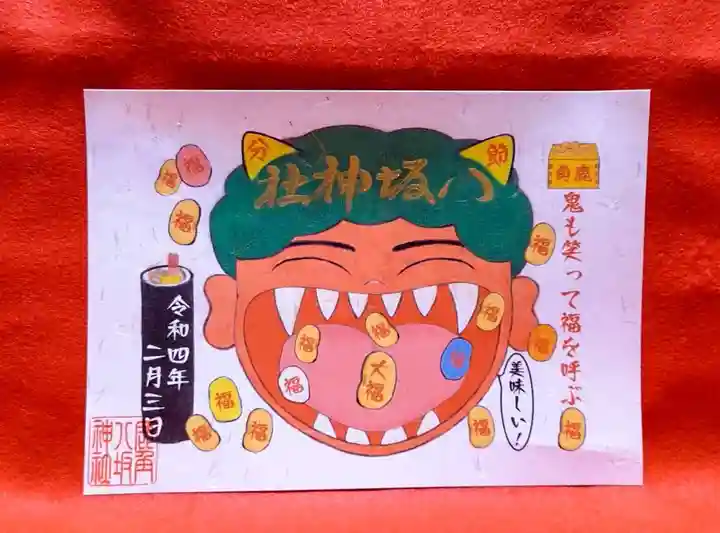 節分
八坂神社
鹿角
鬼も笑って福を呼ぶ
福
福
福
福
福
福
福
福
大福
福
福
福
福
福
福
美味しい!
令和四年
二月三日
鹿角
八坂
神社